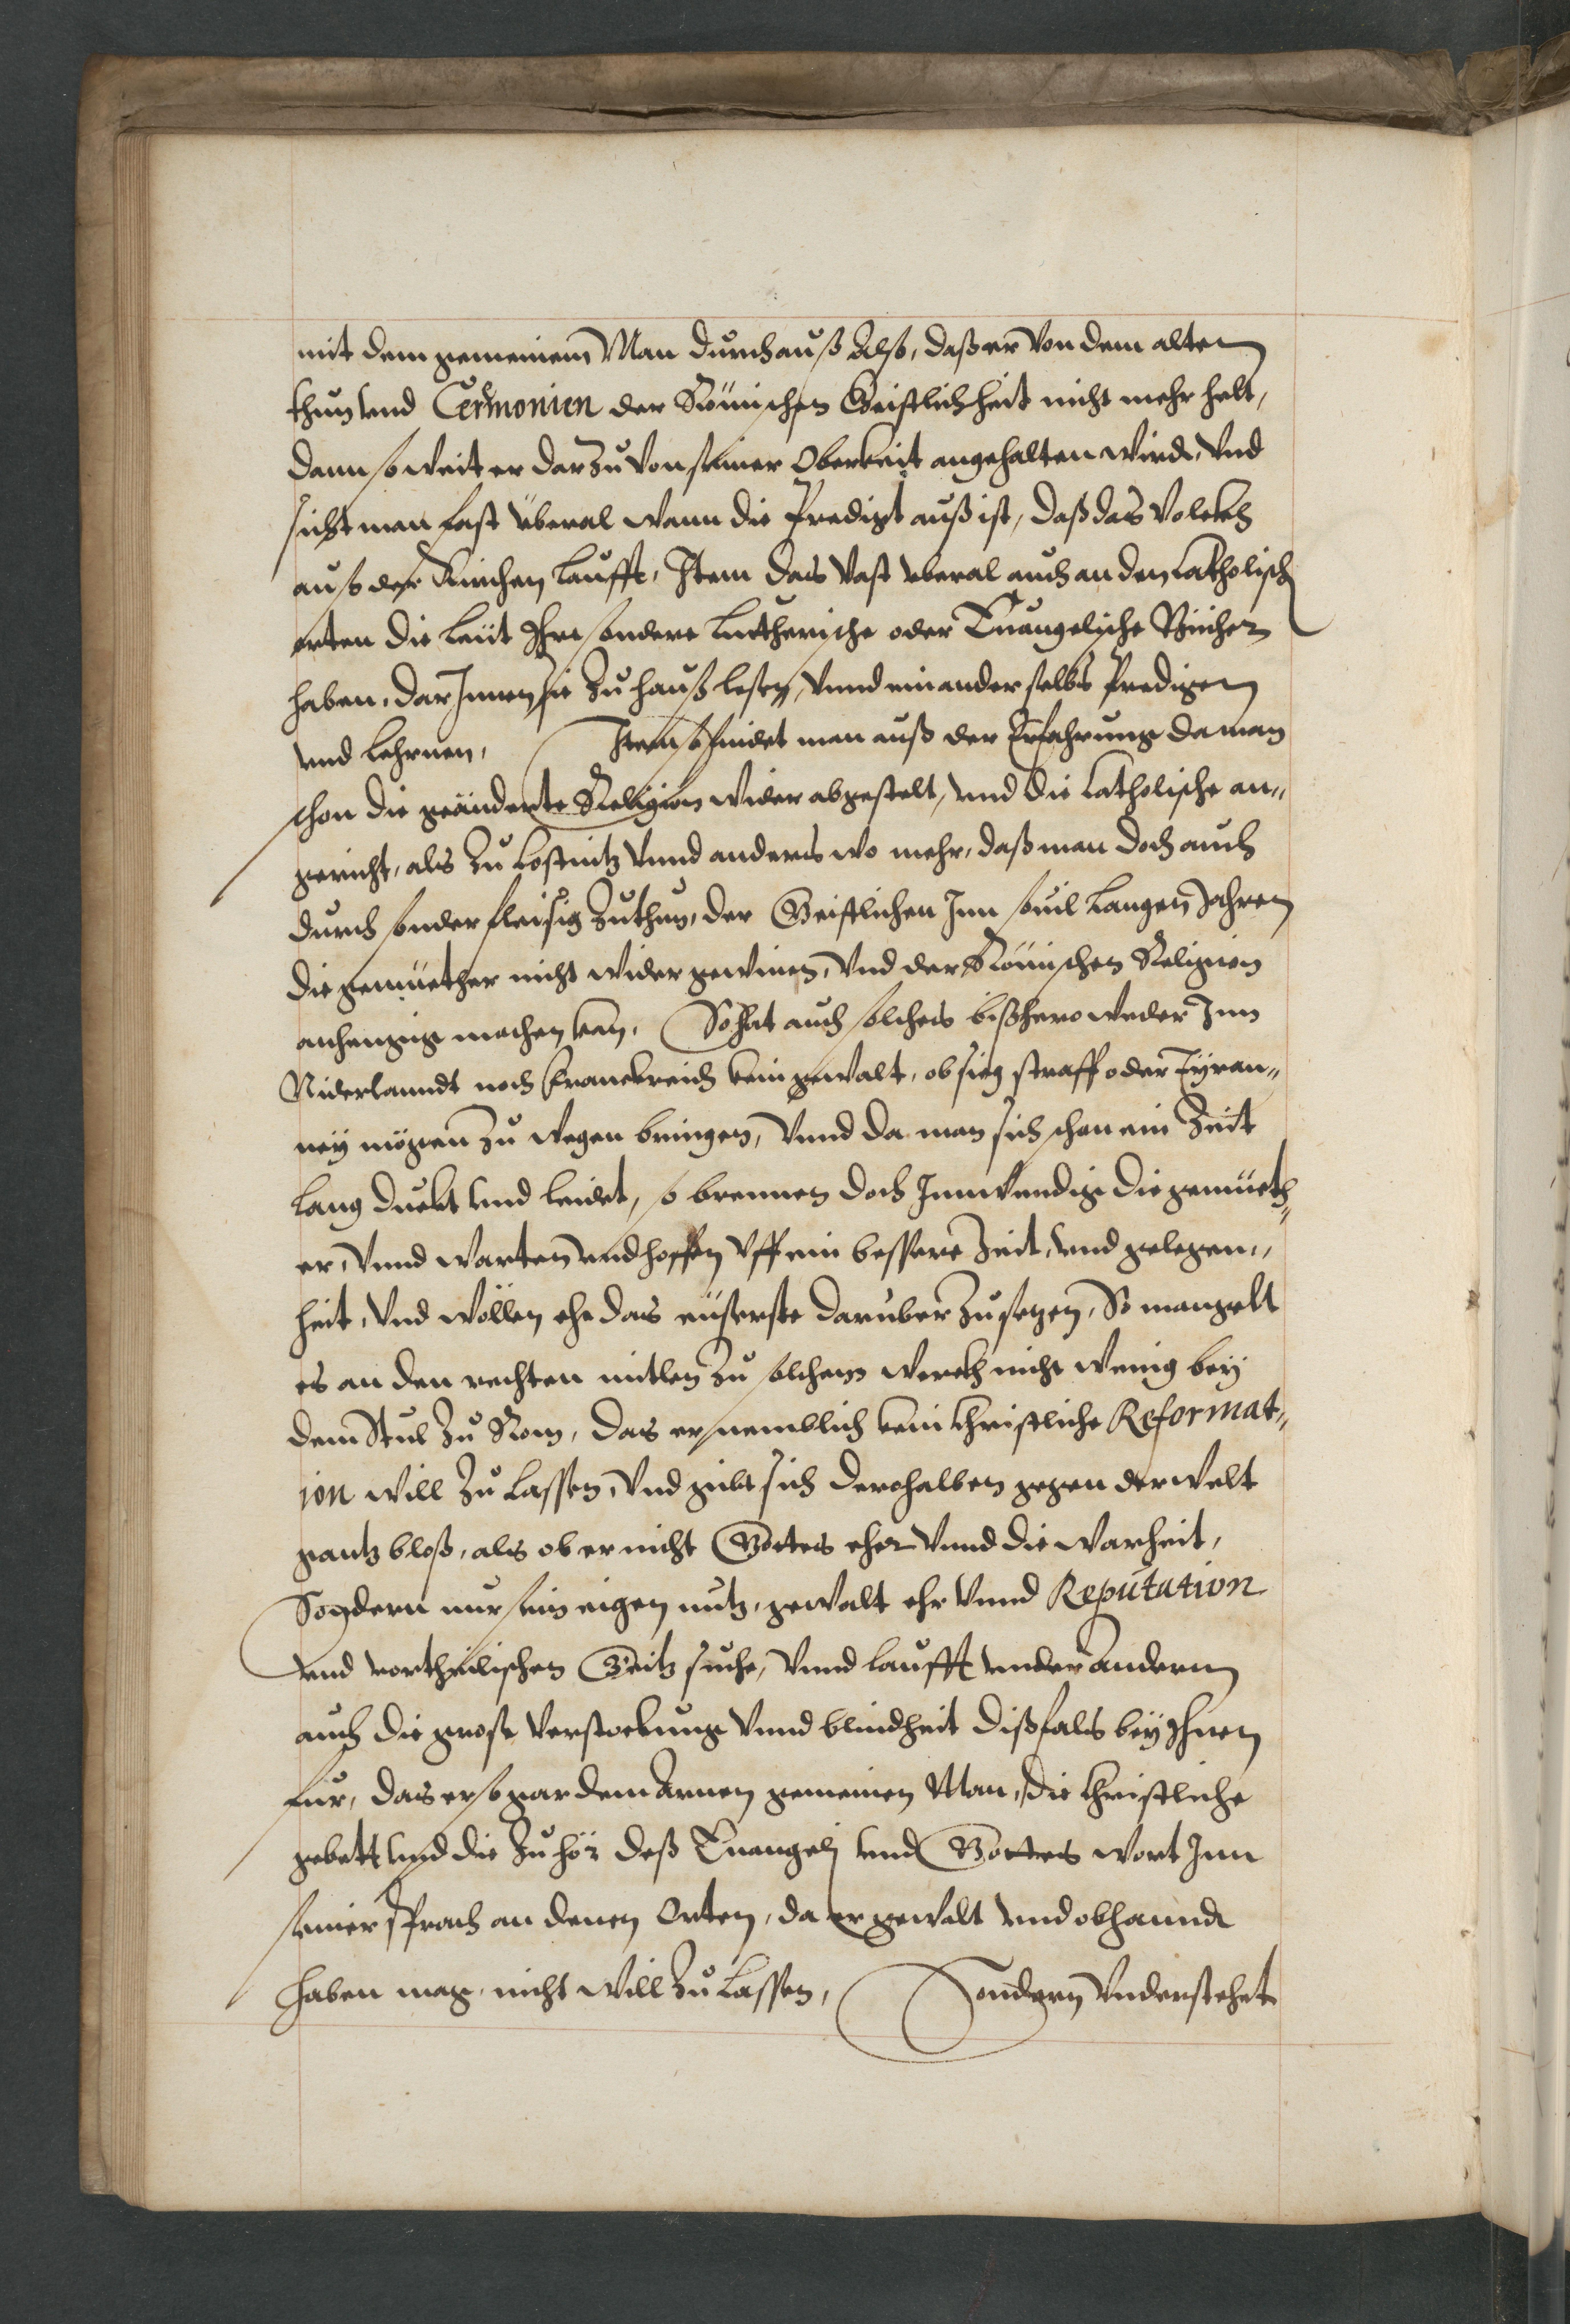 mit dem gemeinem Man durchauß Also, daß er von dem alten
thun vnd Cermonien der Römischen Geistlichheit nicht mehr helt,
dann so weit er darzu von seiner Oberkeit angehalten wirdt, Vnd
sicht man fast überal wann die Predigt auß ist, daß das Volckh
auß der Kirchen laufft, Item das vast vberal auch an den Catholisch
orten die Leüt Ihre sondere Luttherische oder Euangelische Bücher
haben, dar Innen sie zu hauß lesen, Vnnd einander selbs Predigen
vnd Lehrnen, Item so findet man auß der Erfahrung da man
schon die geänderte Religion wider abgestelt, vnd die Catholische an„
gericht, als zu Costnitz Vnnd anders wo mehr, daß man doch auch
durch sonder fleisig zuthun, der Geistlichen Inn souil langen Jahren
die gemüether nicht wider gewinen, Vnd der Römischen Religion
anhengig machen kan, So hat auch solches bißhero weder Inn
Niderlanndt noch Franckreich kein gewalt, obsieg straff oder Tÿran„
neÿ mögen zu wegen bringen, Vnnd da man sich schon ein Zeit
lang duckt vnd leidet, so brennen doch Innwendig die gemüeth„
er, Vnnd warten vnd hoffen Vff ein bessere Zeit, vnd gelegen„
heit, Vnd wöllen ehe das eüserste darüber zusetzen, So mangelt
es an den rechten mitlen zu solchem werckh nicht wenig beÿ
dem Stul zu Rom, das er nemblich kein Christliche Reformat„
ion will zu lassen, Vnd gibt sich derohalben gegen der welt
gantz bloß, als ob er nicht Gottes ehr Vnnd die Warheit,
Sondern nur sein eigen nutz, gewalt ehr Vnnd Reputation
vnd vortheilischen Geitz suche, Vnnd laufft vnder andern
auch die grose Verstockung Vnnd blindheit dißfals beÿ Ihnen
für, das er so gar dem Armen gemeinen Man, die Christliche
gebett vnd die zuhör deß Euangelÿ vnd Gottes wort Inn
seiner sprach an denen Orten, da er gewalt vnd obhanndt
haben mag, nicht will zu lassen, Sondern Vnderstehet